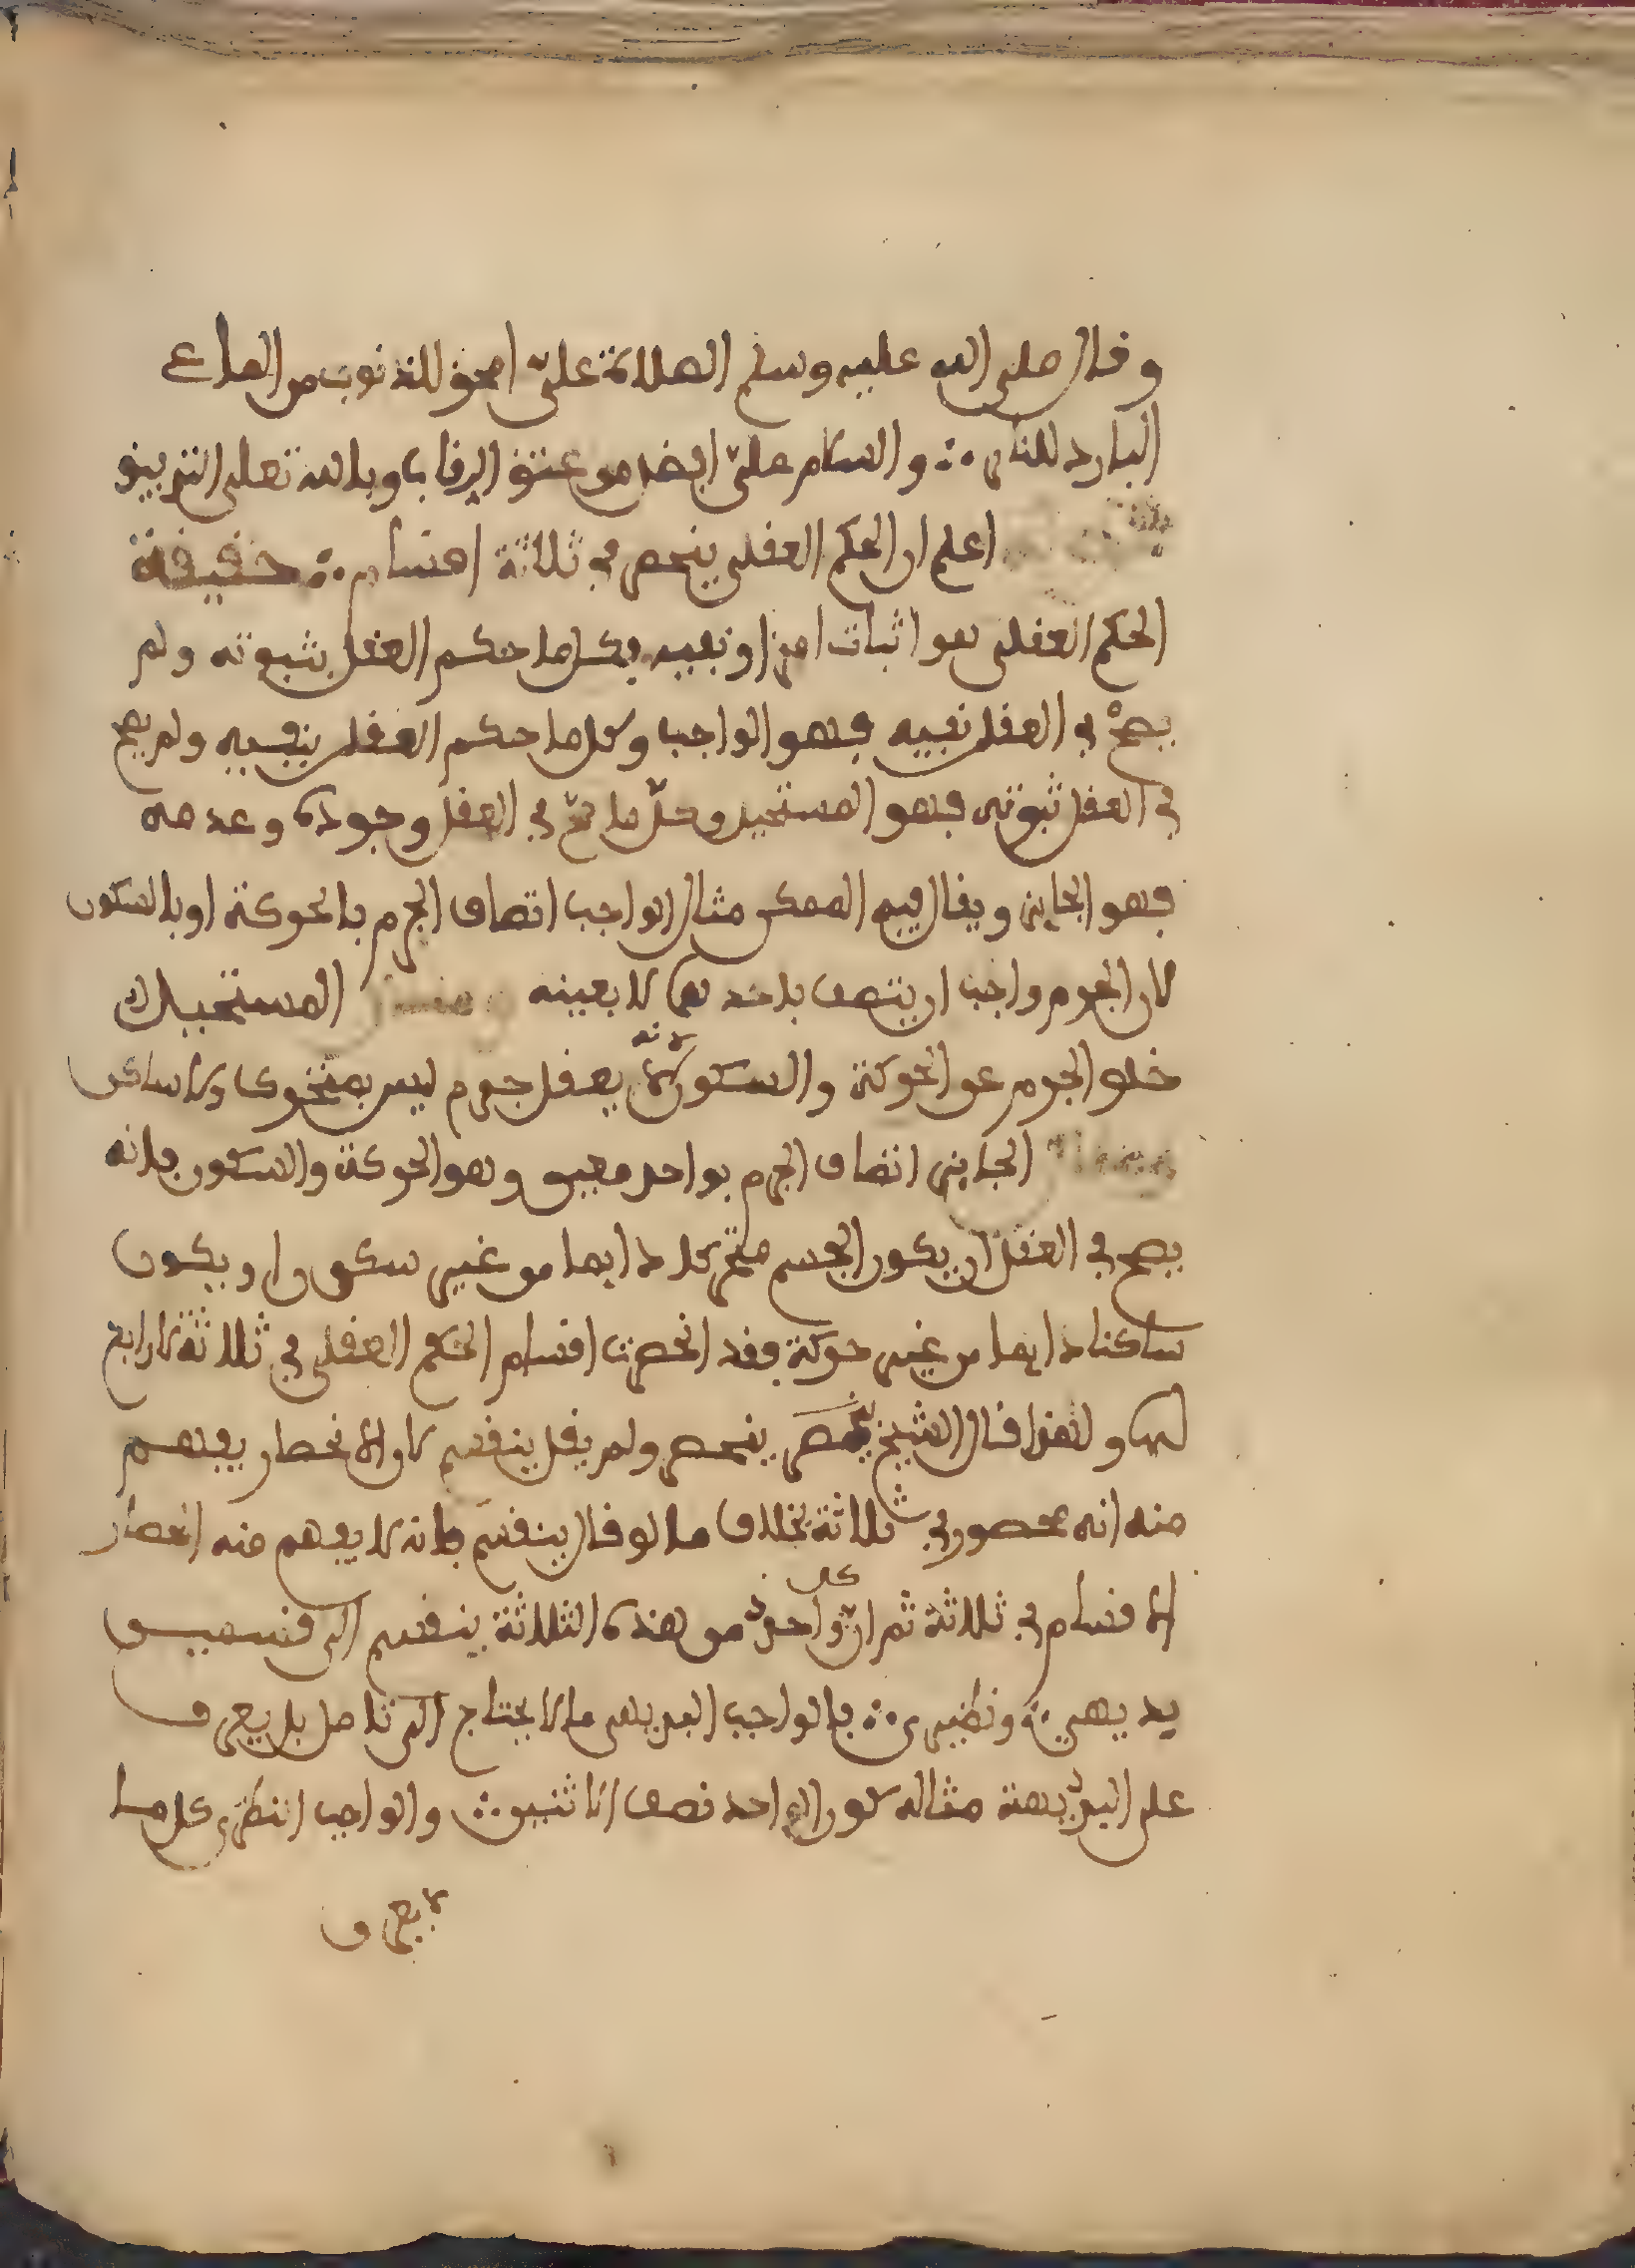 وقال صلى الله عليه وسلم الصلاة عليّ امحق للذنوب من الماء
البارد للنار ؞ والسلام عليّ افضل من عتق الرقاب وبالله تعلى التوفيق
اعلم ان الحكم العقلي ينحصر في ثلاثة اقسام ؞ حقيقة
الحكم العقلي هو اثبات امر او نفيه فكل ما حكم العقل بثبوته ولم
يصحّ في العقل نفيه فهو الواجب وكل ما حكم العقل بنفيه ولم يصح
في العقل ثبوته فهو المستحيل وكلّ ما صحّ في العقل وجوده وعدمه
فهو الجايز ويقال فيه الممكن مثال الواجب اتصاف الجرم بالحركة او بالسكون
لان الجرم واجب ان يتصف باحدهما لا بعينه ومثال المستحيل
خلو الجرم عن الحركة والسكون لانه لا يعقل جرم ليس بمتحرك ولا ساكن
الجايز اتصاف الجرم بواحد معين وهو الحركة والسكون فانه
يصح في العقل ان يكون الجسم متحركا دايما من غير سكون او يكون
ساكنا دايما من غير حركة فقد انحصرت اقسام الحكم العقلي في ثلاثة لا رابع
لها ولهذا قال الشيخ ينحصر ولم يقل ينقسم لان الانحصار يفهم
منه انه محصور في ثلاثة بخلاف ما لو قال ينقسم فانه لا يفهم منه انحصار
الاقسام في ثلاثة ثم ان كل واحد من هذه الثلاثة ينقسم الى قسمين
بديهي ؞ ونظري ؞ فالواجب البديهي ما لا يحتاج الى تامل بل يعرف
على البديهة مثاله كون الواحد نصف الاثنين ؞ والواجب النظري كل ما
لا يعرف